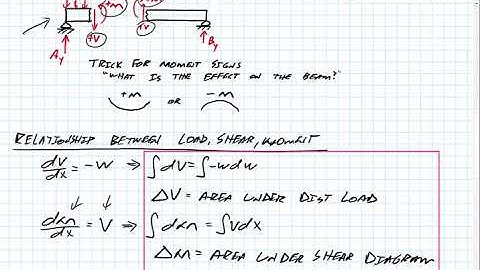 +m
+V
+V
Ay
By
TRICK FOR MOMENT SIGNS
"WHAT IS THE EFFECT ON THE BEAM?"
+m OR -m
RELATIONSHIP BETWEEN LOAD, SHEAR, & MOMENT
dV/dx = -W ⇒ ∫dV = ∫-wdw
ΔV = AREA UNDER DIST LOAD
dm/dx = V ⇒ ∫dm = ∫Vdx
Δm = AREA UNDER SHEAR DIAGRAM